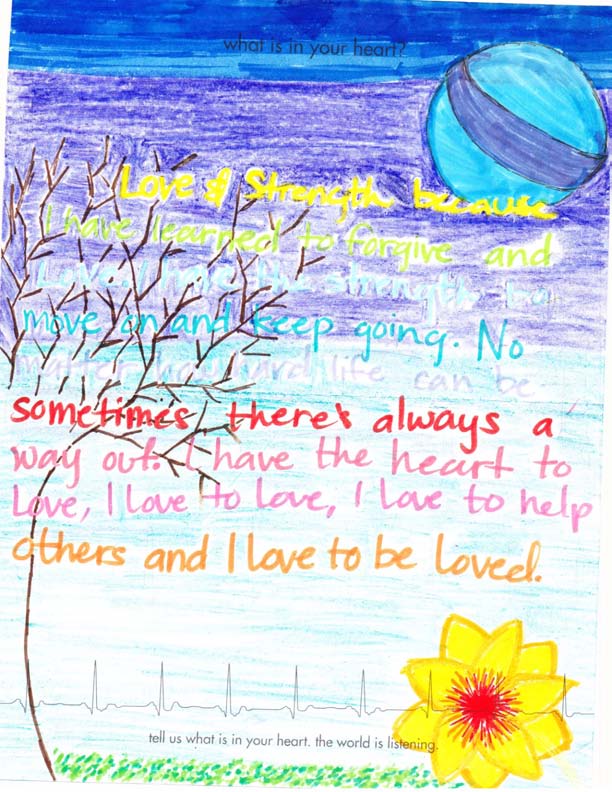 what is in your heart?
Love & Strength because
I have learned to forgive and
Love. I have the strength to
move on and keep going. No
matter how hard life can be
sometimes, there's always a
way out. I have the heart to
Love, I love to love, I love to help
others and I love to be loved.
tell us what is in your heart. the world is listening.